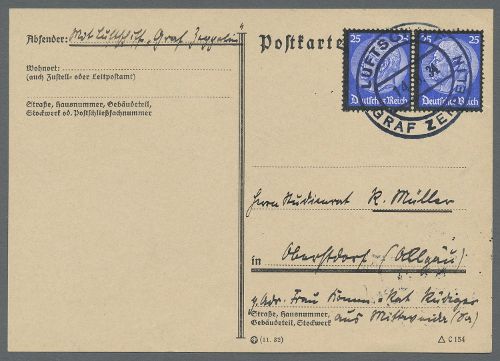 Absender: Mit Luftschiff „Graf Zeppelin"
Wohnort:
(auch Zustell- oder Leitpostamt)
Straße, Hausnummer, Gebäudeteil,
Stockwerk od. Postschließfachnummer
Postkarte
25 25
25 25
Deutsches Reich
Deutsches Reich
LUFTSCHIFF
GRAF ZEPPELIN
Herrn Studienrat K. Müller
in Oberstdorf (Allgäu)
p. Adr. Frau Komm.-Rat Rüdiger
aus Mittweida (Sa)
Straße, Hausnummer,
Gebäudeteil, Stockwerk
(11. 32)
C 154